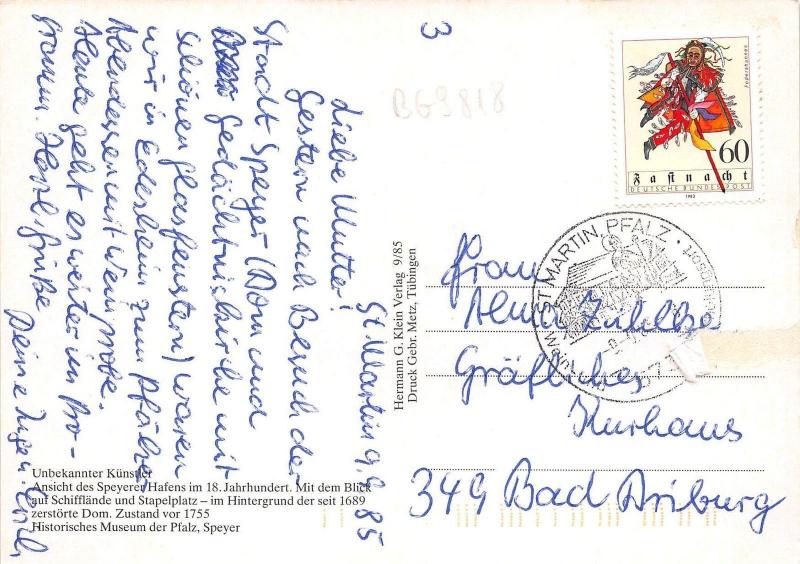 St. Martin 9.9.85
Liebe Mutter!
Gestern nach Besuch der
Stadt Speyer (Dom und
Gedächtniskirche mit
schönen Glasfenstern) waren
wir in Edesheim zum Pfälzer
Abendessen mit Weinprobe.
Heute geht es weiter im Pro-
gramm. Herzl. Grüße
Deine Inge u. Erich
3
BG9818
Federahannes
60
Fastnacht
1983
DEUTSCHE BUNDESPOST
ST MARTIN, PFALZ
Frau
Alma
Gräfliches
Kurhaus
349 Bad Driburg
Hermann G. Klein Verlag 9/85
Druck Gebr. Metz, Tübingen
Unbekannter Künstler
Ansicht des Speyerer Hafens im 18. Jahrhundert. Mit dem Blick
auf Schifflände und Stapelplatz – im Hintergrund der seit 1689
zerstörte Dom. Zustand vor 1755
Historisches Museum der Pfalz, Speyer